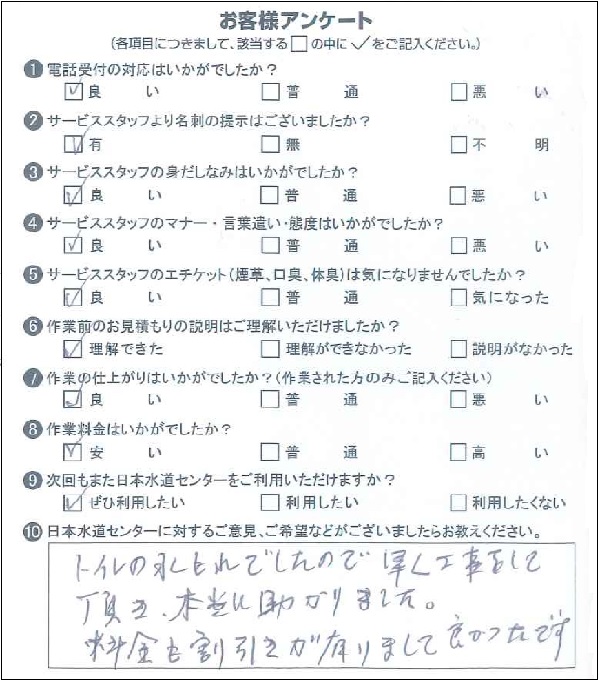 お客様アンケート
(各項目につきまして、該当する□の中に✓をご記入ください。)
❶電話受付の対応はいかがでしたか?
☑良い □普通 □悪い
❷サービススタッフより名刺の提示はございましたか?
☑有 □無 □不明
❸サービススタッフの身だしなみはいかがでしたか?
☑良い □普通 □悪い
❹サービススタッフのマナー・言葉遣い・態度はいかがでしたか?
☑良い □普通 □悪い
❺サービススタッフのエチケット(煙草、口臭、体臭)は気になりませんでしたか?
☑良い □普通 □気になった
❻作業前のお見積もりの説明はご理解いただけましたか?
☑理解できた □理解ができなかった □説明がなかった
❼作業の仕上がりはいかがでしたか?(作業された方のみご記入ください)
☑良い □普通 □悪い
❽作業料金はいかがでしたか?
☑安い □普通 □高い
❾次回もまた日本水道センターをご利用いただけますか?
☑ぜひ利用したい □利用したい □利用したくない
❿日本水道センターに対するご意見、ご希望などがございましたらお教えください。
トイレの水もれでしたので早く工事をして
頂き、本当に助かりました。
料金も割引きが有りまして良かったです